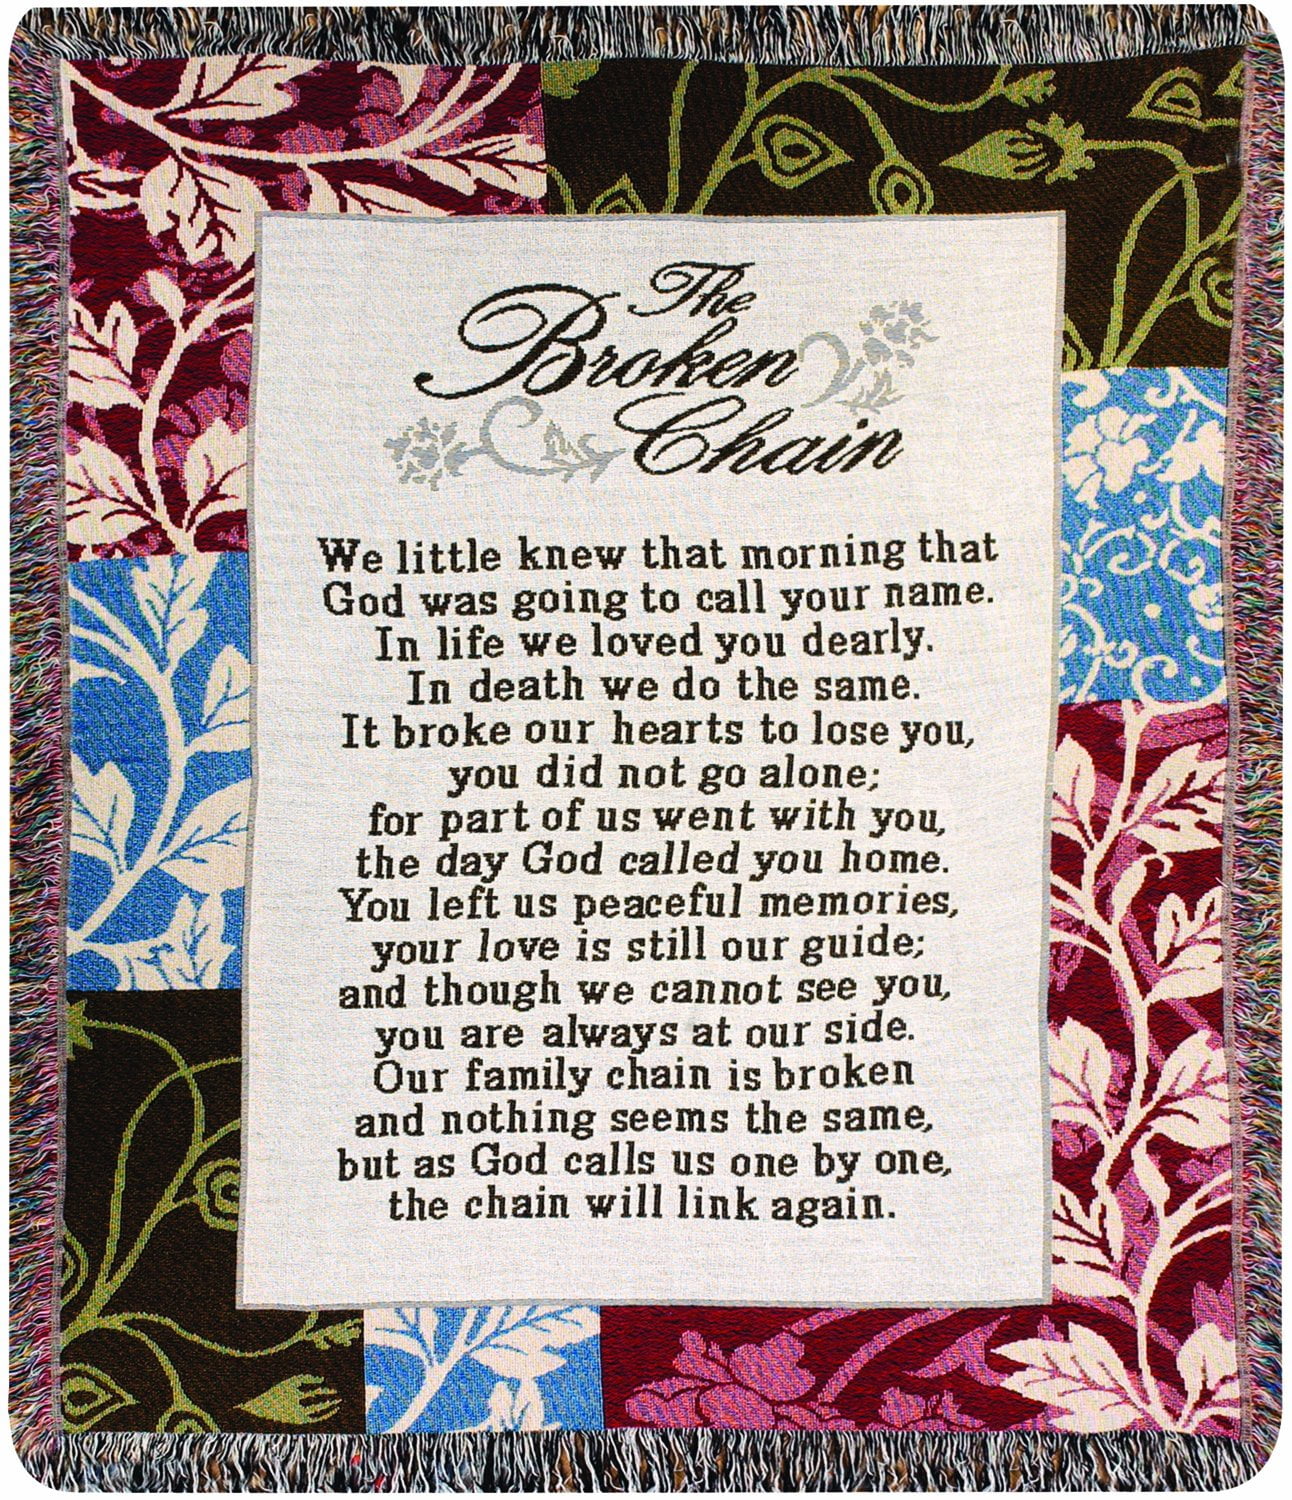 The
Broken
Chain
We little knew that morning that
God was going to call your name.
In life we loved you dearly.
In death we do the same.
It broke our hearts to lose you,
you did not go alone;
for part of us went with you,
the day God called you home.
You left us peaceful memories,
your love is still our guide;
and though we cannot see you,
you are always at our side.
Our family chain is broken
and nothing seems the same,
but as God calls us one by one,
the chain will link again.